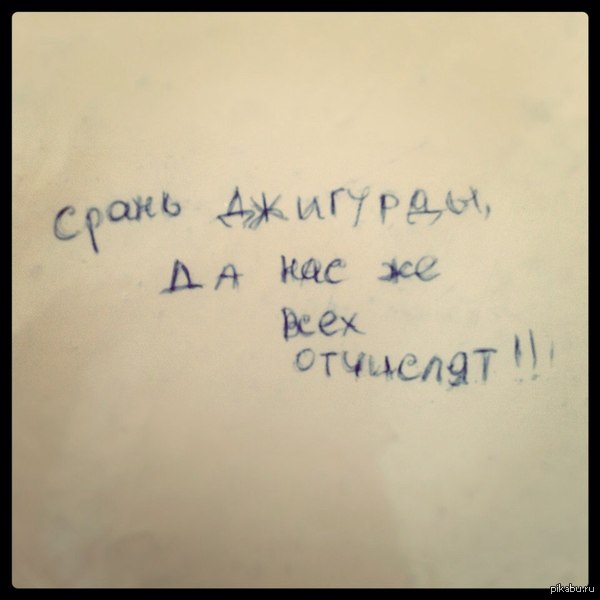 срань джигурды,
да нас же
всех
отчислят!!!
pikabu.ru